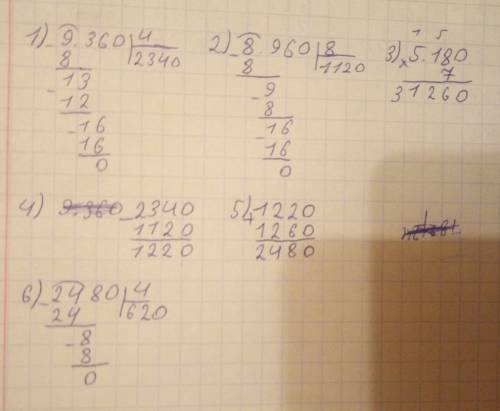 1) - 9.360 | 4
8 | 2340
- 13
12
- 16
16
0
2) - 8.960 | 8
8 | 1120
- 9
8
- 16
16
0
1 5
3) × 5.180
7
31260
4) 9.360 - 2340
1120
1220
5) + 1220
1260
2480
6) - 2480 | 4
24 | 620
- 8
8
0